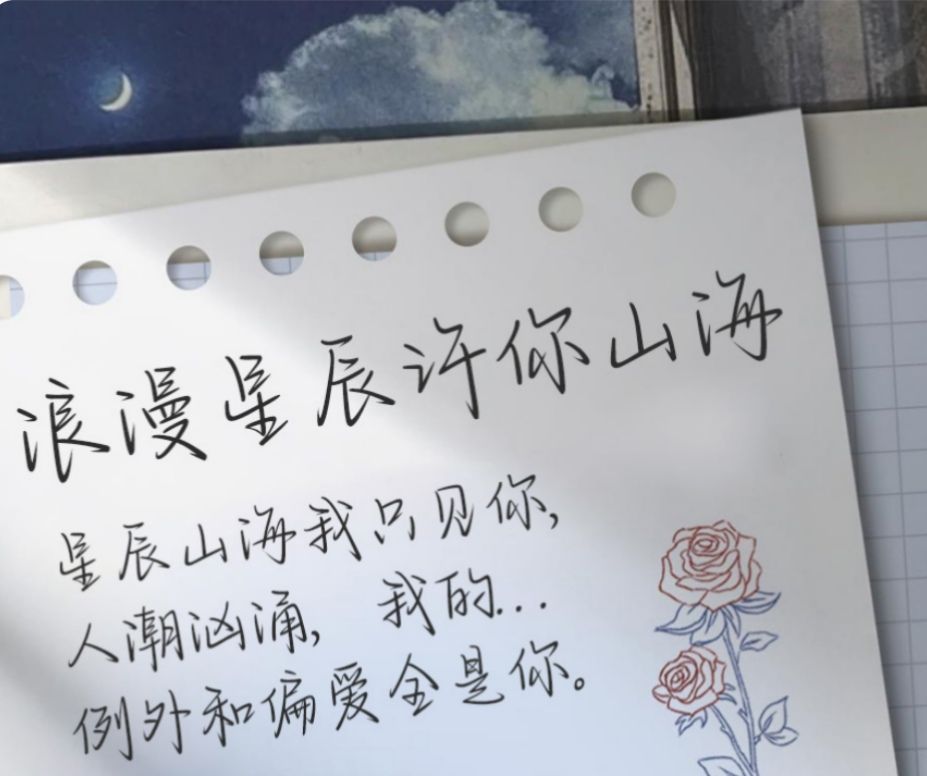 浪漫星辰许你山海
星辰山海我只见你,
人潮汹涌, 我的...
例外和偏爱全是你。